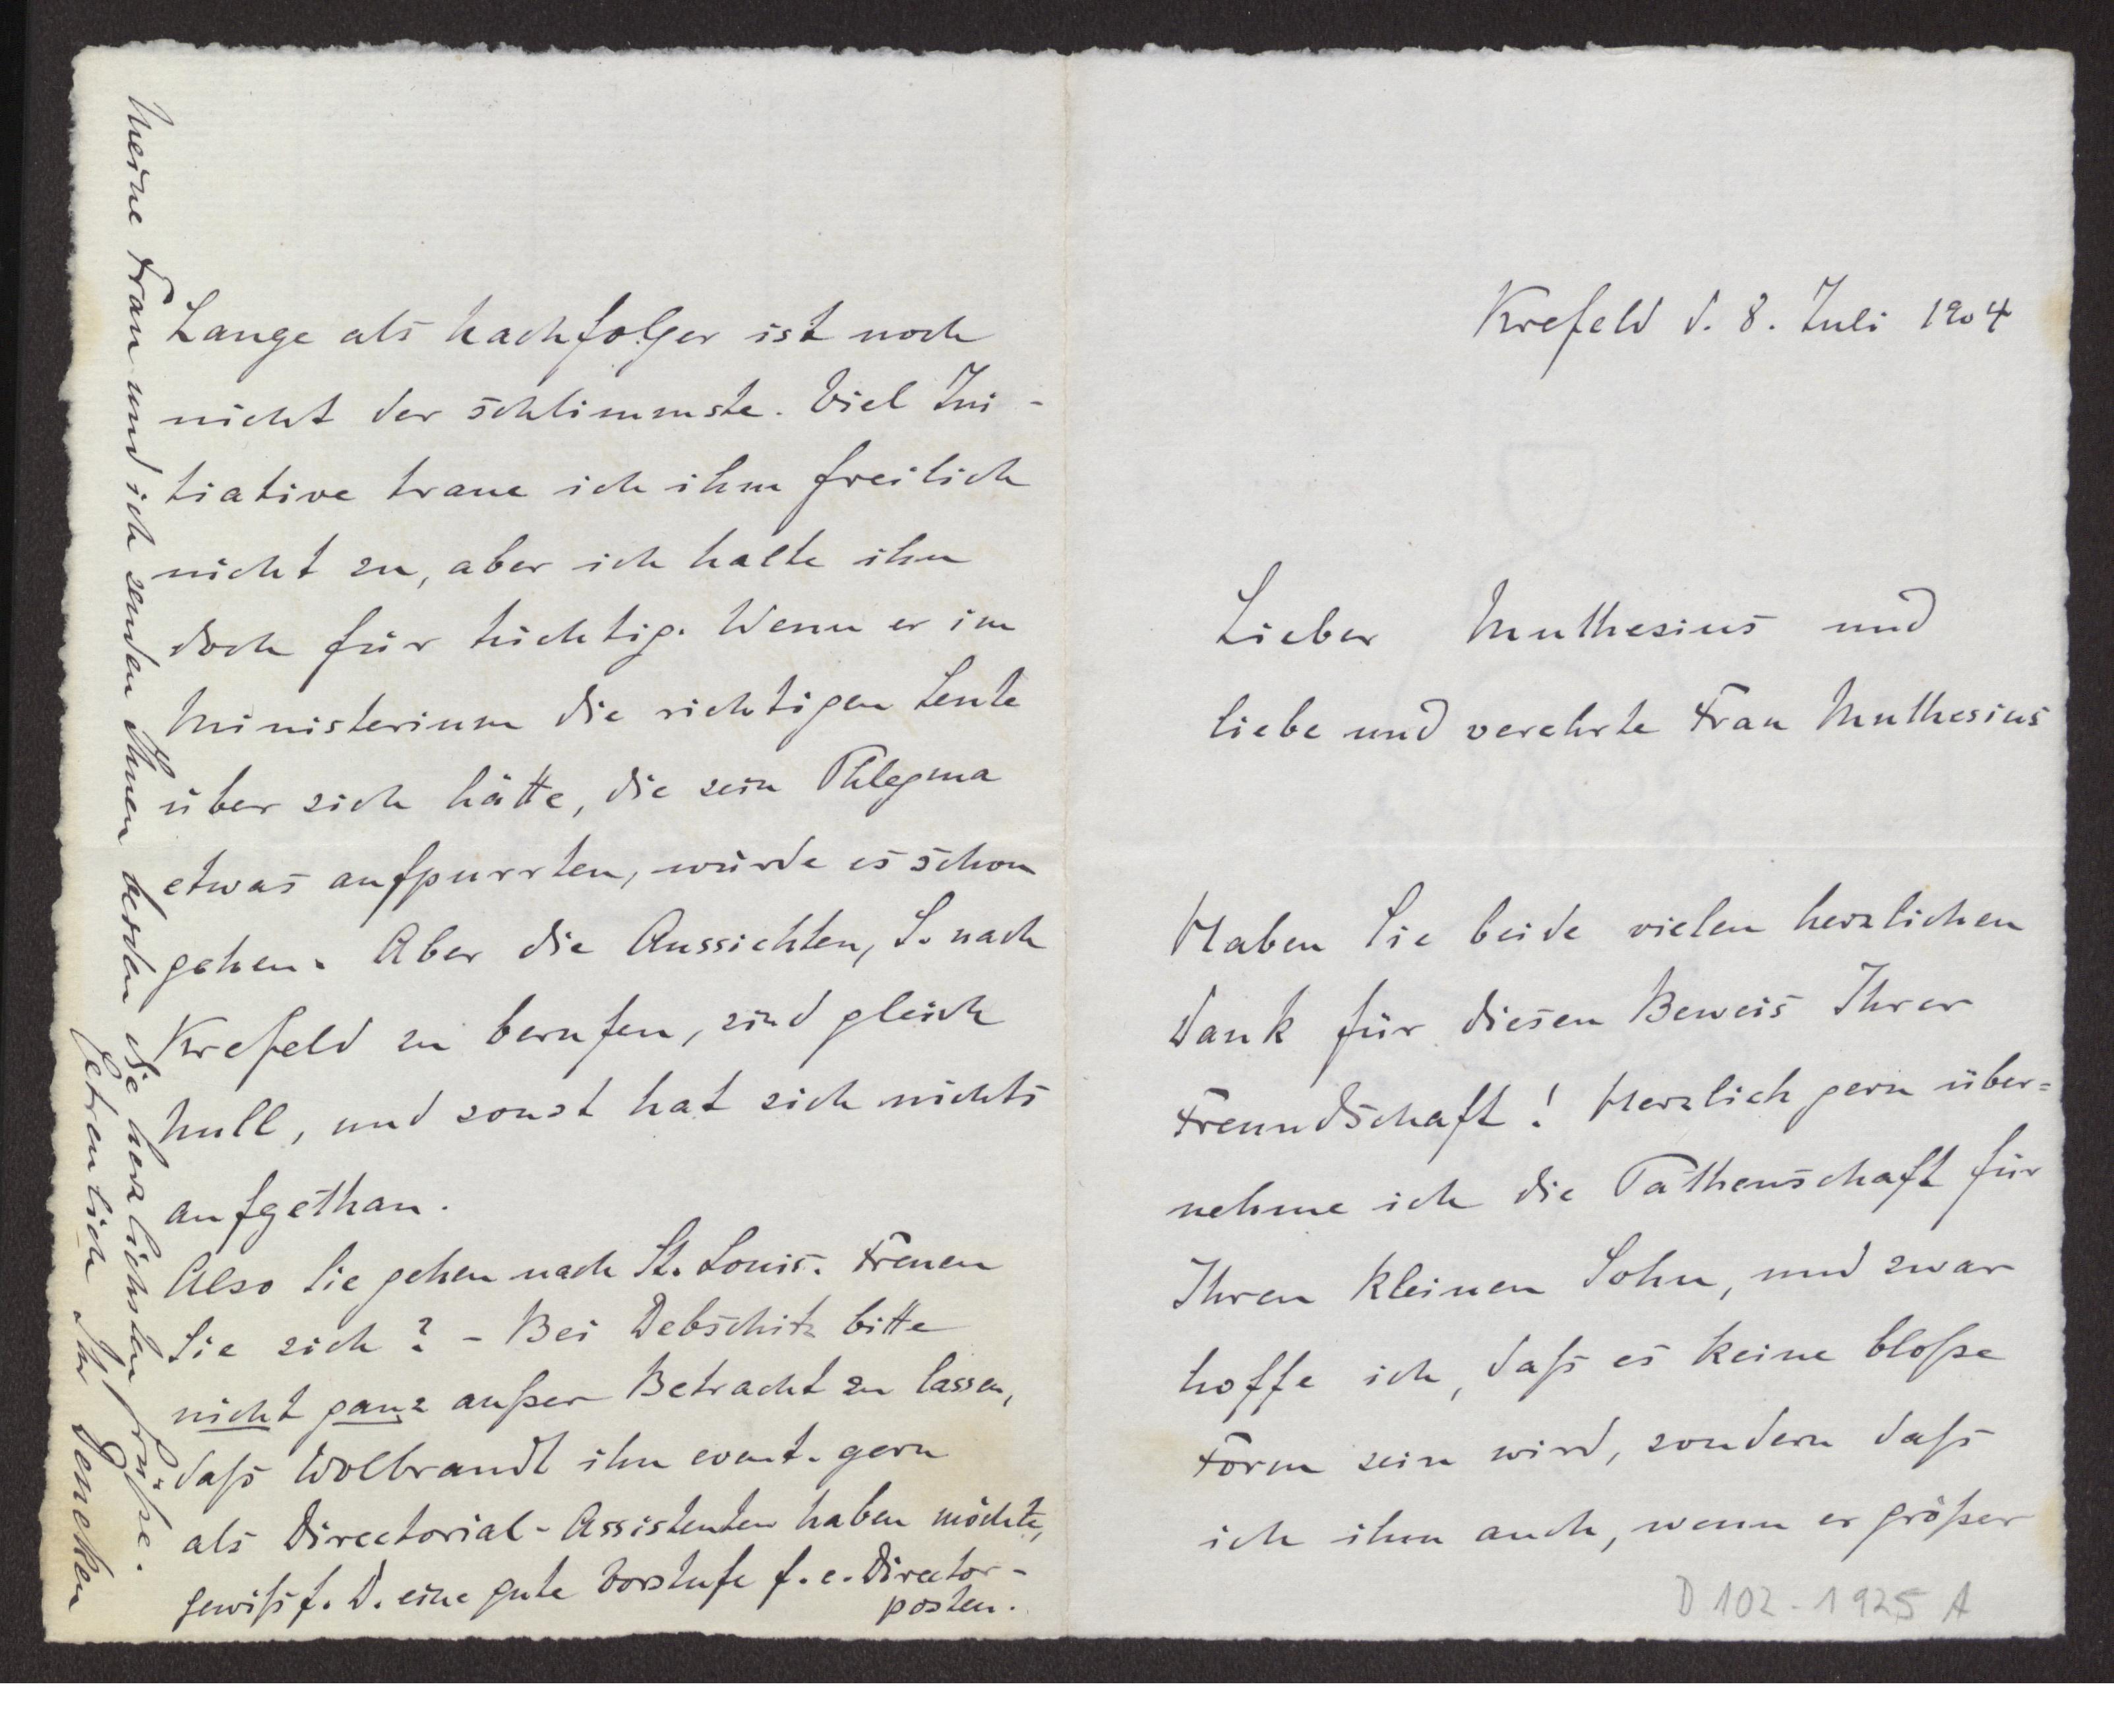 Krefeld d. 8. Juli 1904
Lieber Muthesius und
liebe und verehrte Frau Muthesius
Haben Sie beide vielen herzlichen
Dank für diesen Beweis Ihrer
Freundschaft! Herzlich gern über=
nehme ich die Pathenschaft für
Ihren kleinen Sohn, und zwar
hoffe ich, daß es keine bloße
Form sein wird, sondern daß
ich ihm auch, wenn er größer
D 102-1925 A
Lange als Nachfolger ist noch
nicht der schlimmste. Viel Ini-
tiative traue ich ihm freilich
nicht zu, aber ich halte ihn
doch für tüchtig. Wenn er im
Ministerium die richtigen Leute
über sich hätte, die sein Phlegma
etwas aufpurrten, würde es schon
gehen. Aber die Aussichten, L. nach
Krefeld zu berufen, sind gleich
Null, und sonst hat sich nichts
aufgethan.
Also Sie gehen nach St. Louis. Freuen
Sie sich? - Bei Debschitz bitte
nicht ganz außer Betracht zu lassen,
daß Wolbrandt ihn event. gern
als Directorial-Assistenten haben möchte,
gewiß f. D. eine gute Vorstufe f. e. Director-
posten.
Meine Frau und ich senden Ihnen beiden die herzlichsten Grüße.
Getreulich Ihr Deneken